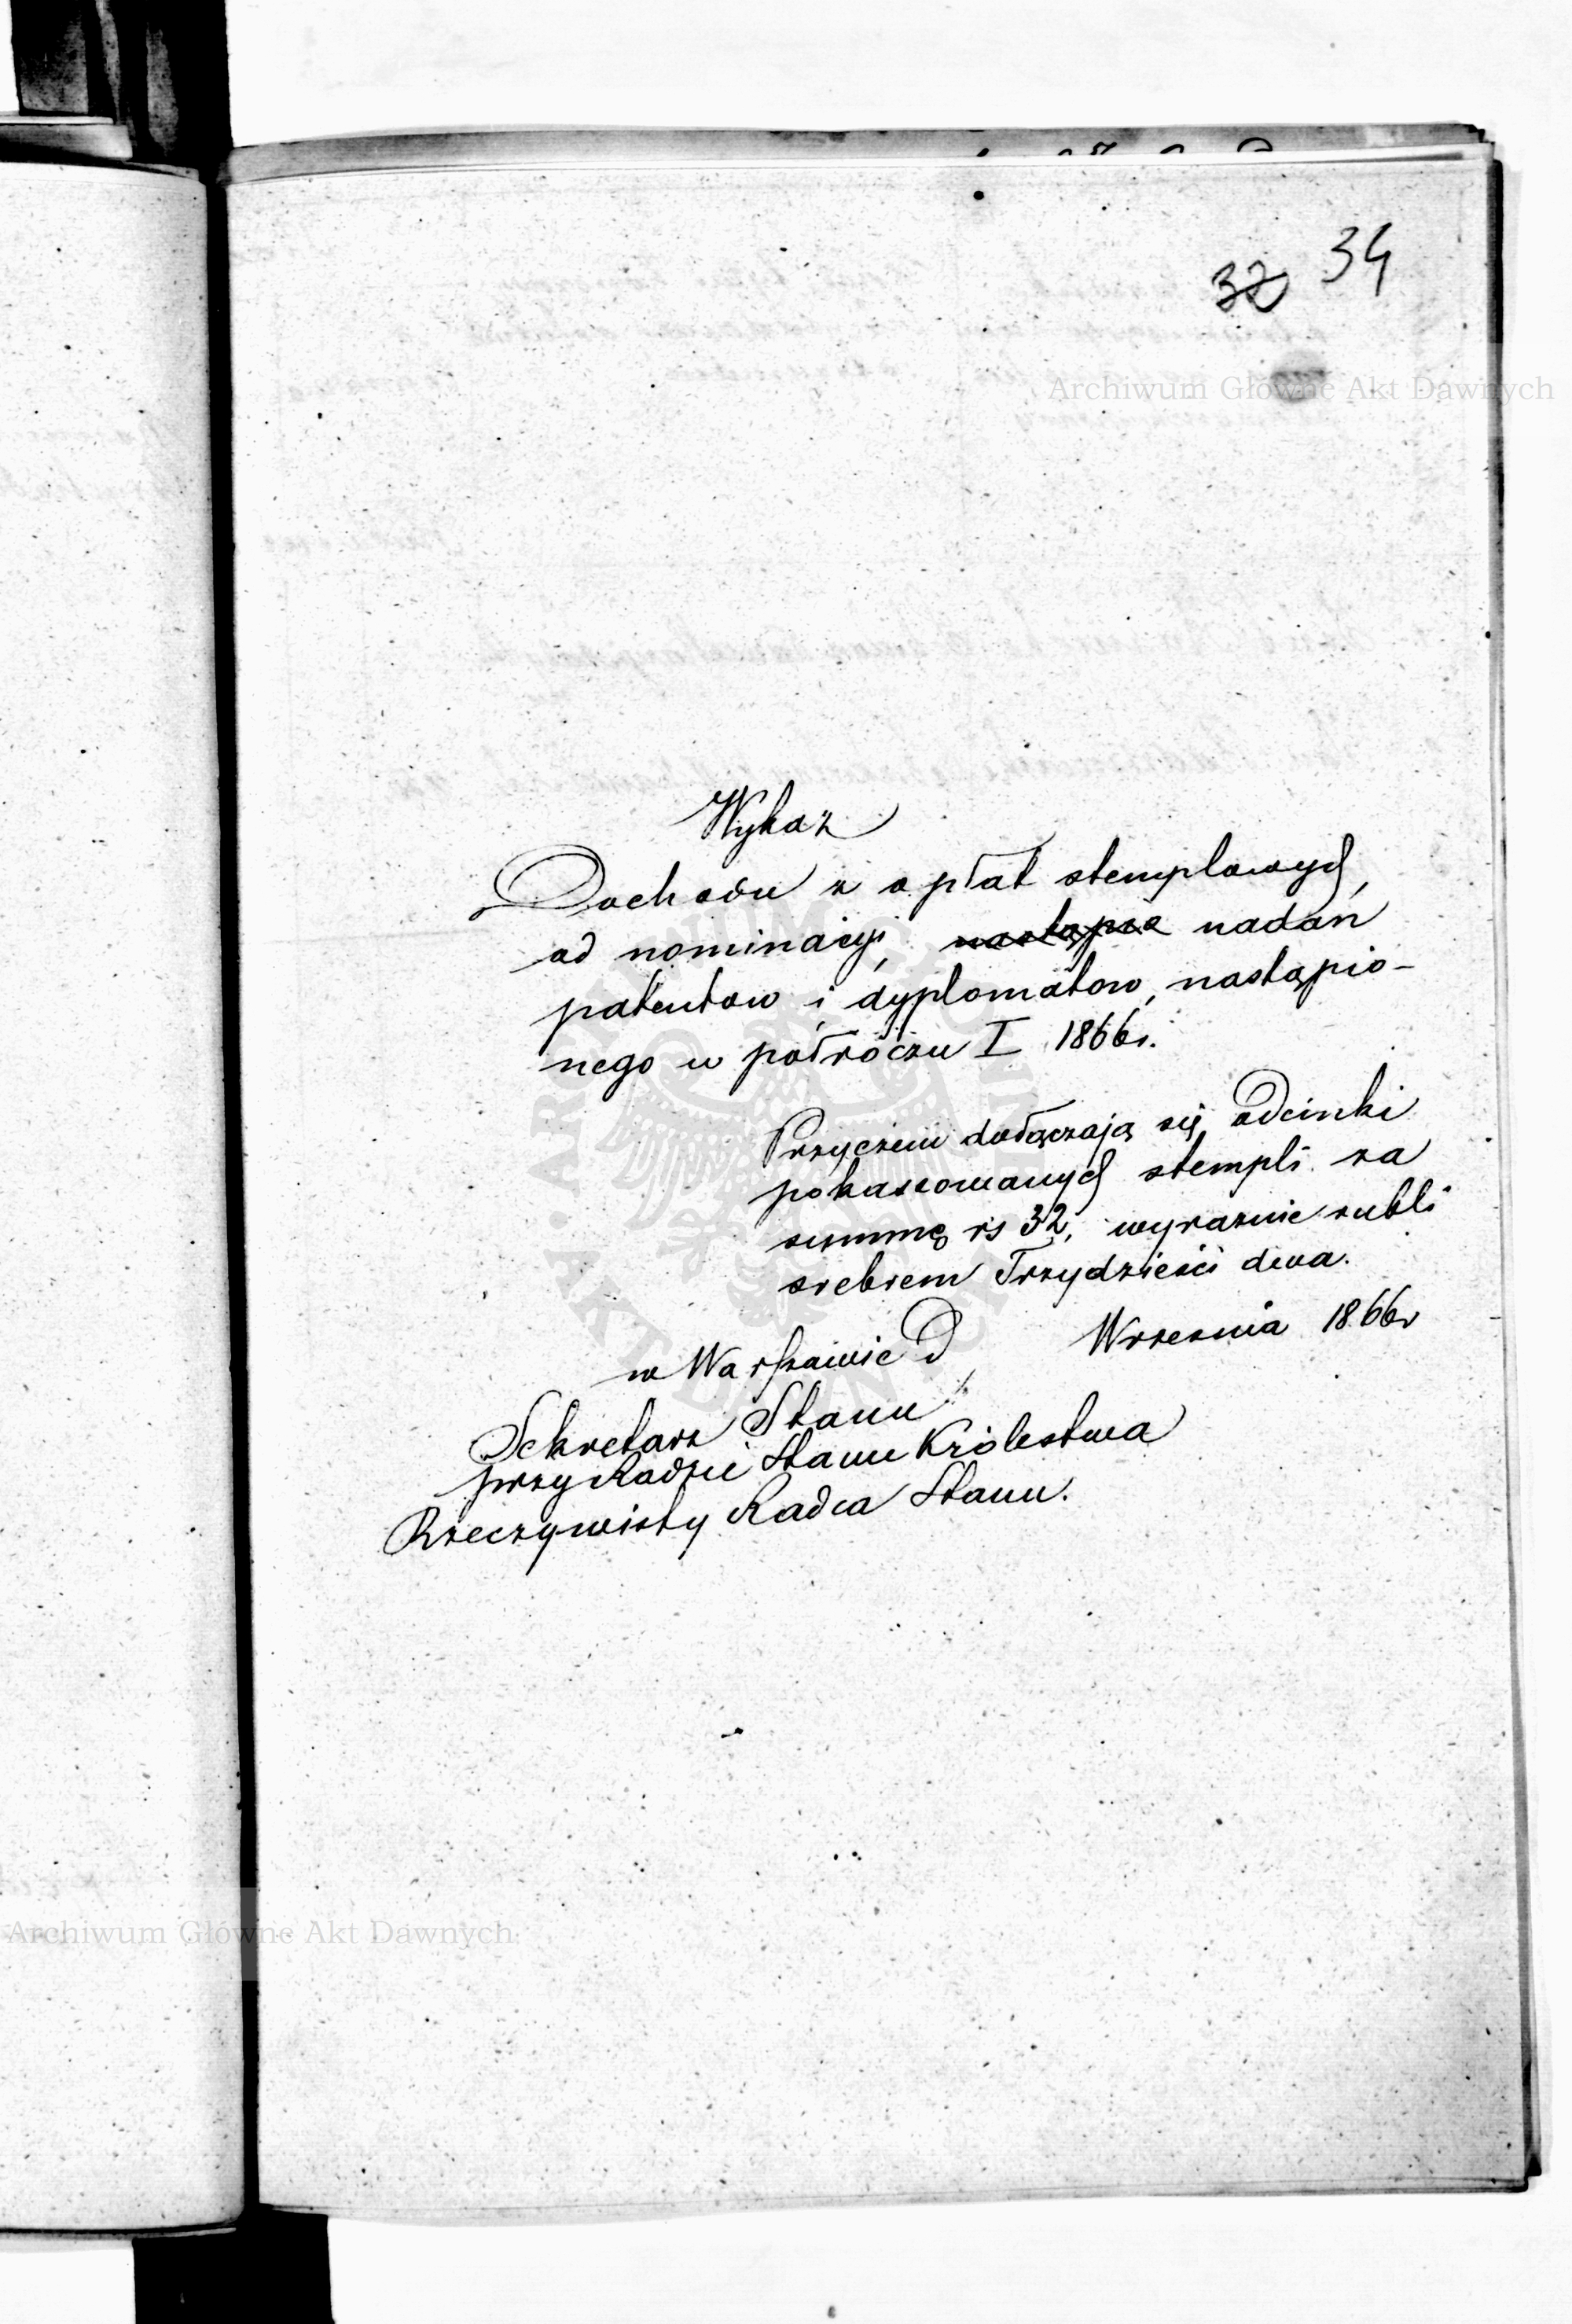 32 34
Archiwum Główne Akt Dawnych
Wykaz
Dochodu z opłat stemplowych,
od nominacyi, nastąpio nadań
patentow i dyplomatow, nastąpio-
nego w półróczu I 1866r.
Przyczem dołączają się odcinki
pokassowanych stempli za
summę rs 32, wyraznie rubli
srebrem Trzydzieści dwa.
w Warszawie D Wrzesnia 1866r
Sekretarz Stanu
przy Radzie Stanu Królestwa
Rzeczywisty Radca Stanu.
Archiwum Główne Akt Dawnych